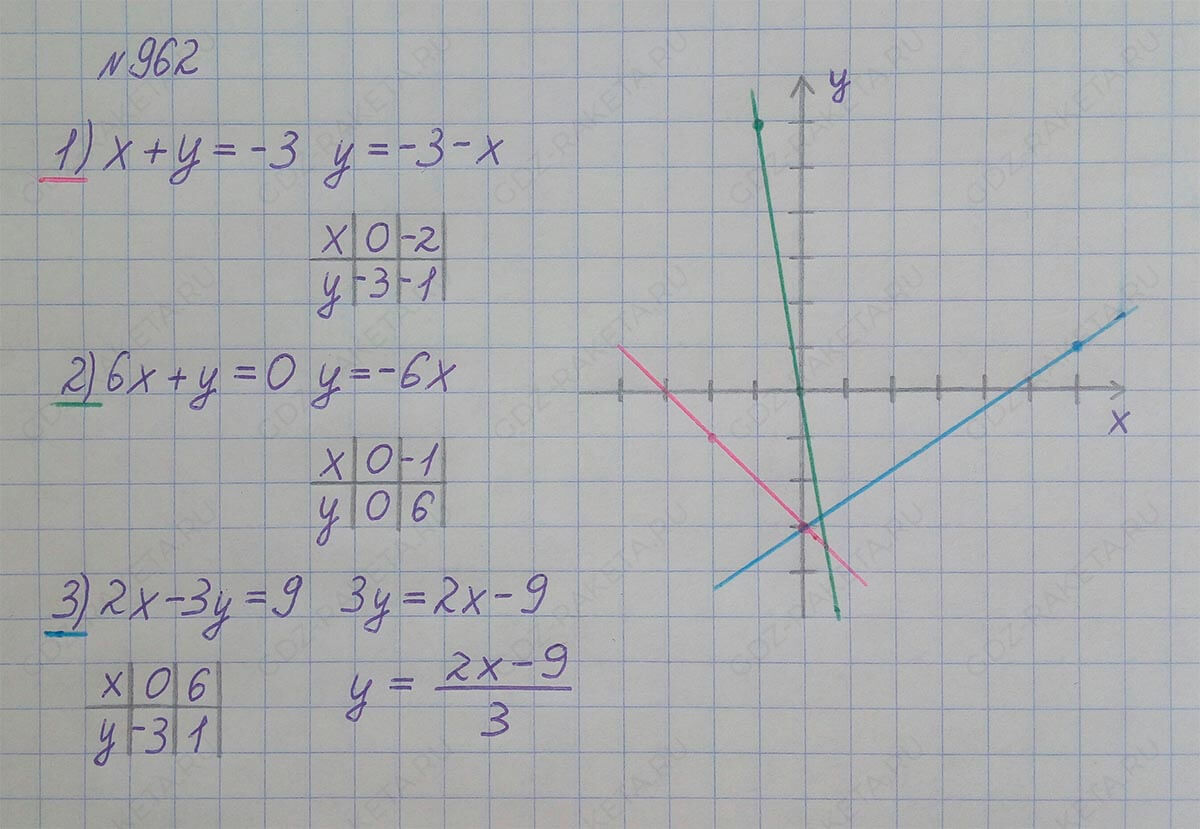 №962
1) x + y = -3 y = -3 - x
x 0 -2
y -3 -1
2) 6x + y = 0 y = -6x
x 0 -1
y 0 6
3) 2x - 3y = 9 3y = 2x - 9
x 0 6
y -3 1
y = 2x - 9
3
y
x
GDZ-RAKETA.RU